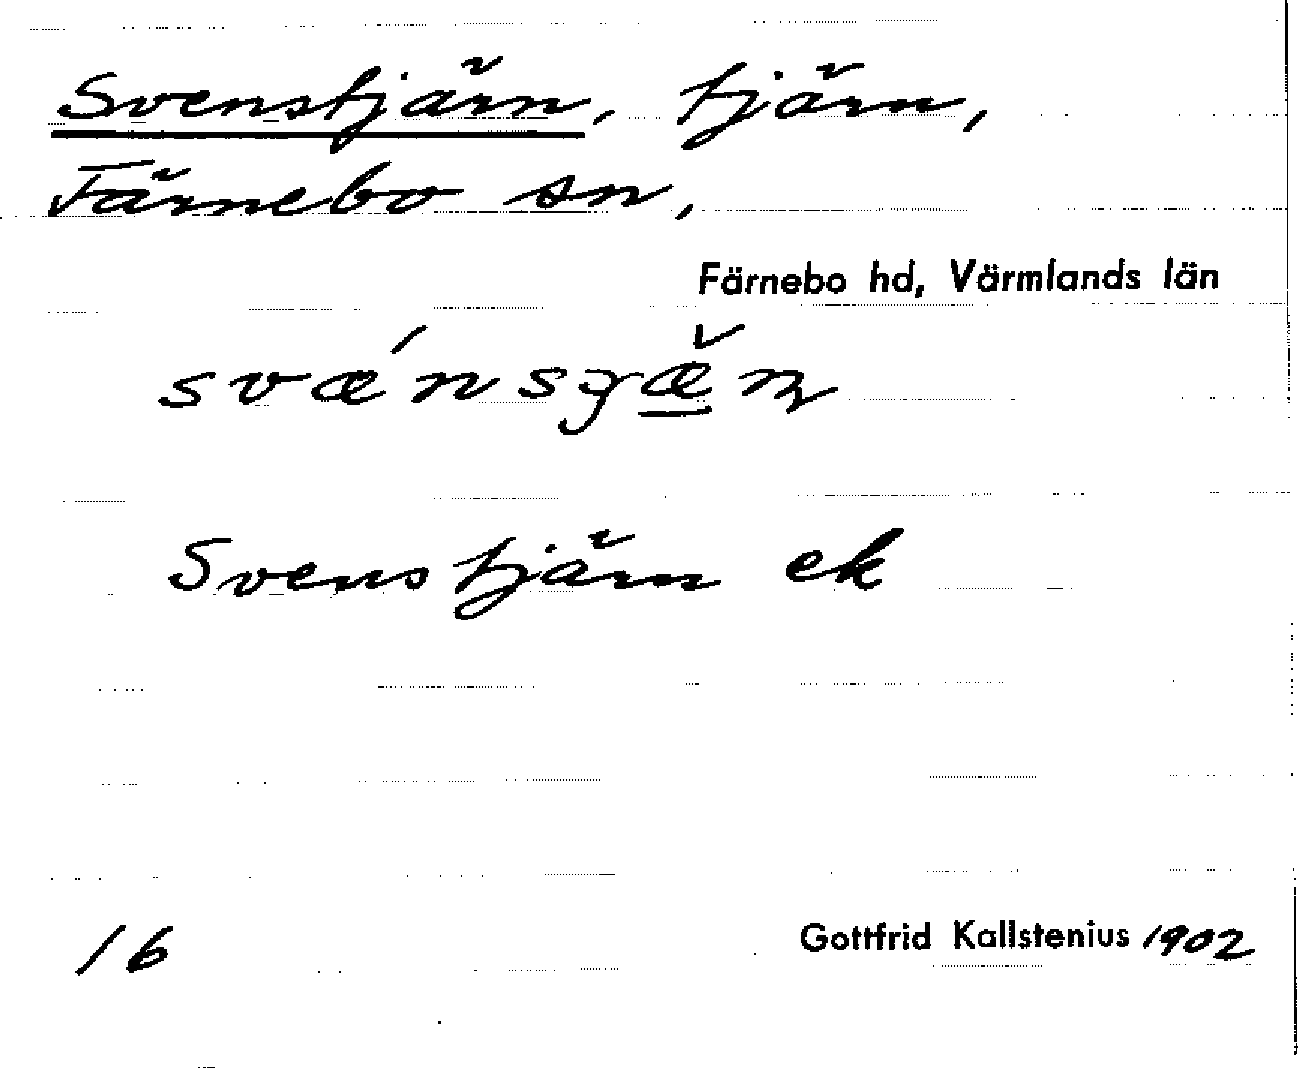 Svenstjärn, tjärn,
Färnebo sn,
Färnebo hd, Värmlands län
svǽnsgæ̲̌ɳ
Svenstjärn ek
16
Gottfrid Kallstenius 1902